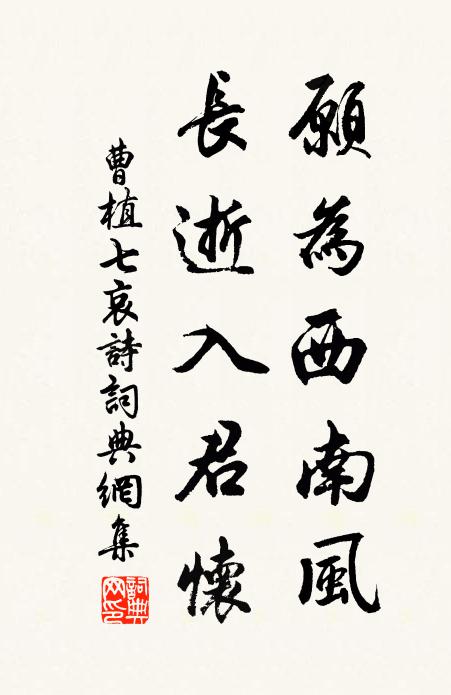 願為西南風
長逝入君懷
曹植七哀詩詞典網集
詞典網印